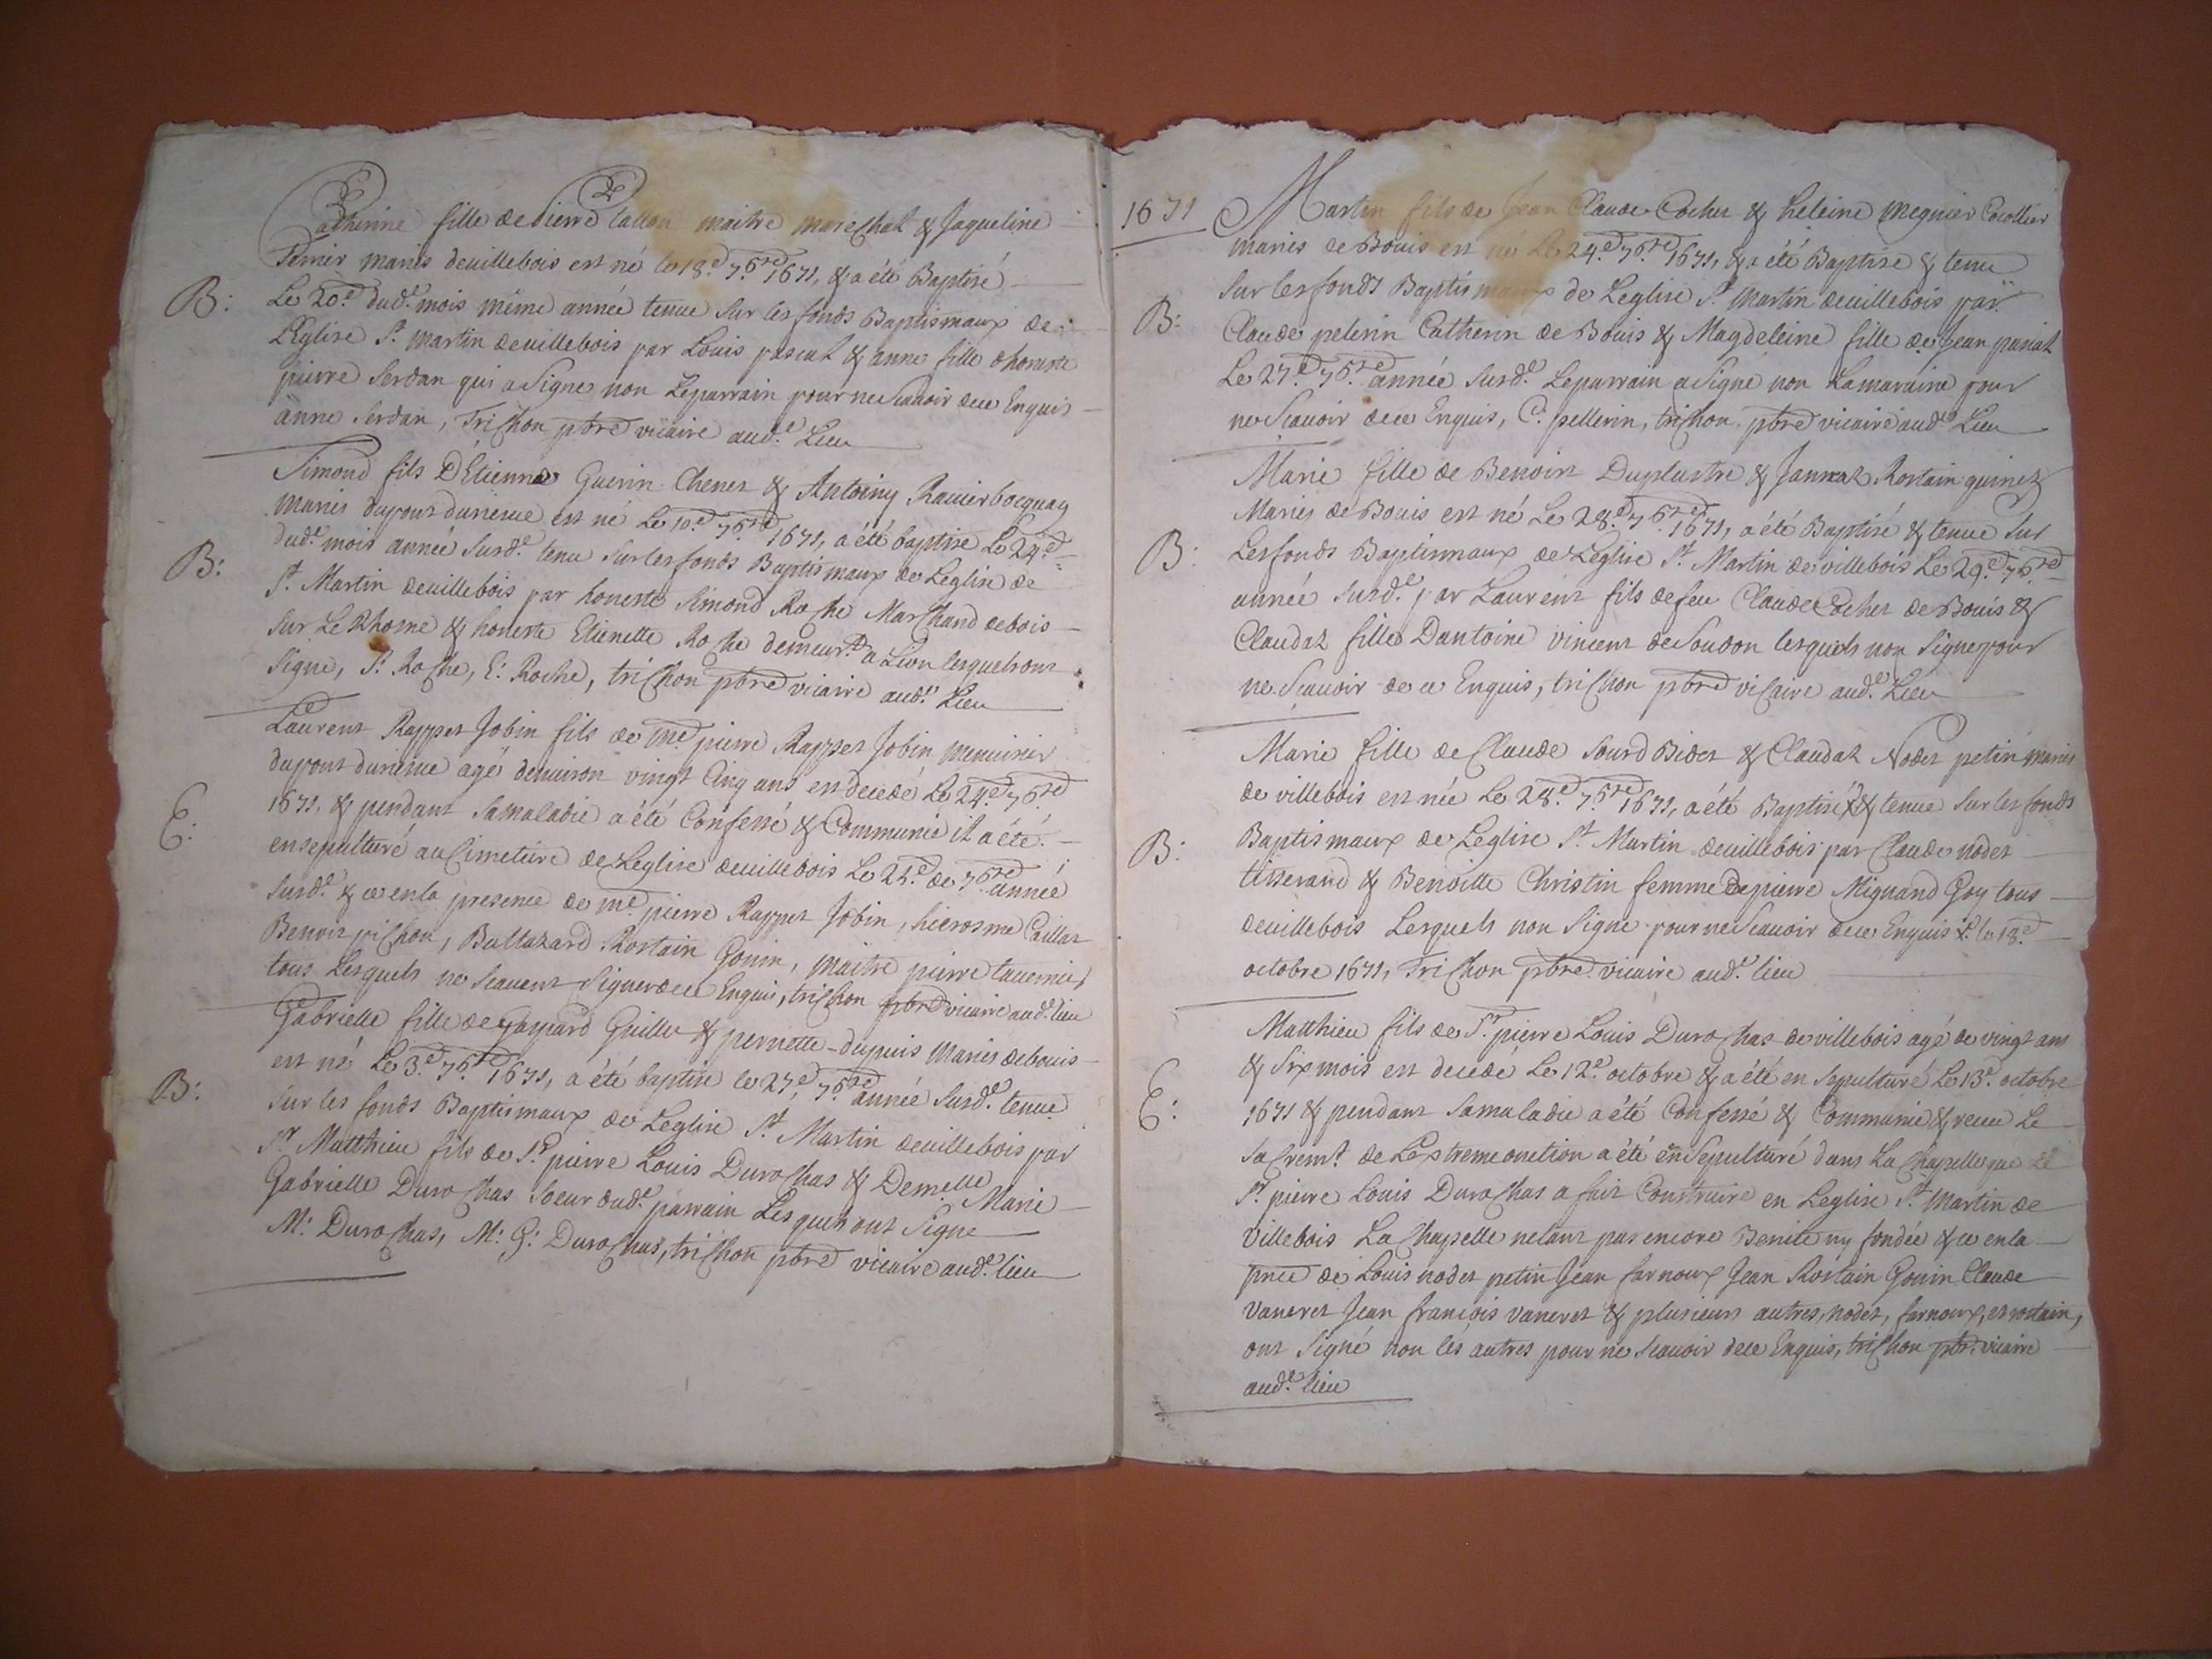 Catherine fille de Pierre Callon maitre mareschal & Jaqueline
Ternier mariés de villebois est né le 18.e 7b.re 1671, & a été Baptisé
B: Le 20.e dud.t mois même année tenue sur les fonds Baptismaux de
L'Eglise S.t Martin de villebois par Louis pascal & anne fille d'honeste
pierre Serdan qui a Signe, non Leparrain pour ne Scavoir de ce Enquis
anne Serdan, Trichon pbre vicaire aud.t Lieu
Simond fils D'Etienne Guerin Chenet & Antoiny Ravier bocquay
mariés dupont dunieme est né Le 10.e 7b.re 1671, a été baptise Le 24.e
B: dud.t mois année Susd.e tenu sur les fonds Baptismaux de Leglise de
S.t Martin de villebois par honeste Simond Roche Marchand de bois
sur Le Rhosne & honeste Etienette Roche demeur.te a Lion lesquels ont
signe, S: Roche, E: Roche, trichon pbre vicaire aud.t Lieu
Laurent Rappet Jobin fils de M.e pierre Rappet Jobin menuisier
dupont dunieme agé denviron vingt Cinq ans est decedé Le 24.e 7b.re
E: 1671, & pendant Samaladie a été Confessé & Communié il a été
ensepulturé au Cimetiere de Leglise de villebois Le 25.e de 7b.re année
susd.e & ce en la presence de m.e pierre Rappet Jobin, hierosme Caillat
Benoit pichon, Baltazard Rostain Gonin, maitre pierre tavernier
tous Lesquels ne scavent Signer de ce Enquis, trichon pbre vicaire aud.t lieu
Gabrielle fille de Gaspard Guillet & pernette dupuis Mariés de bouis
est né Le 3.e 7b.re 1671, a été baptise le 27.e 7b.re année Susd.e tenue
B: sur les fonds Baptismaux de Leglise S.t Martin de villebois par
S.r Matthieu fils de S.r pierre Louis Durochas & Demelle Marie
Gabrielle Durochas Soeur dud.t parrain Lesquels ont Signe
M: Durochas, M: G: Durochas, trichon pbre vicaire aud.t lieu
1671 Martin fils de Jean Claude Cochet & heleine megnier Cocollier
mariés de Bouis est né Le 24.e 7b.re 1671, & a été Baptise & tenu
sur les fonds Baptismaux de Leglise S.t Martin de villebois par
B: Claude pelerin Catherin de Bouis & Magdeleine fille de Jean pariat
Le 27.e 7b.re année Susd.e Leparrain a Signe non Lamaraine pour
ne Scavoir de ce Enquis, C: pellerin, trichon pbre vicaire aud.t Lieu
Marie fille de Benoist Duplastre & Jannaz Rostain quinet
Mariés de Bouis est né Le 28.e 7b.re 1671, a été Baptisé & tenue Sur
B: Les fonds Baptismaux de Leglise S.t Martin de villebois Le 29.e 7b.re
année Susd.e par Laurent fils de feu Claude Cochet de Bouis &
Claudaz fille Dantoine vincent de Soudon lesquels non Signe pour
ne Scavoir de ce Enquis, trichon pbre vicaire aud.t Lieu
Marie fille de Claude Sourd Bidet & Claudaz Nodet petin mariés
de villebois est née Le 28.e 7b.re 1671, a été Baptisé & tenue sur les fonds
B: Baptismaux de Leglise S.t Martin de villebois par Claude nodet
tisserand & Benoitte Christin femme de pierre Mignand Goy tous
de villebois Lesquels non Signe pour ne Scavoir de ce Enquis le 18.e
octobre 1671, Trichon pbre vicaire aud.t lieu
Matthieu fils de S.r pierre Louis Durochas de villebois agé de vingt ans
& Six mois est decedé Le 12.e octobre & a été en sepulturé Le 13.e octobre
E: 1671 & pendant Samaladie a été Confessé & Communié & receu Le
Sacrem.t de Lextreme onction a été enSepulturé dans La Chapelle que Le
S.r pierre Louis Durochas a fait Construire en Leglise S.t Martin de
Villebois La Chapelle netant pas encore Benite ny fondée & ce en la
pnce de Louis nodet petin Jean farnoux Jean Rostain Gonin Claude
Vaneret Jean françois vaneret & plusieurs autres, nodet, farnoux, et rostain,
ont Signé non les autres pour ne Scavoir de ce Enquis, trichon pbre vicaire
aud.t lieu